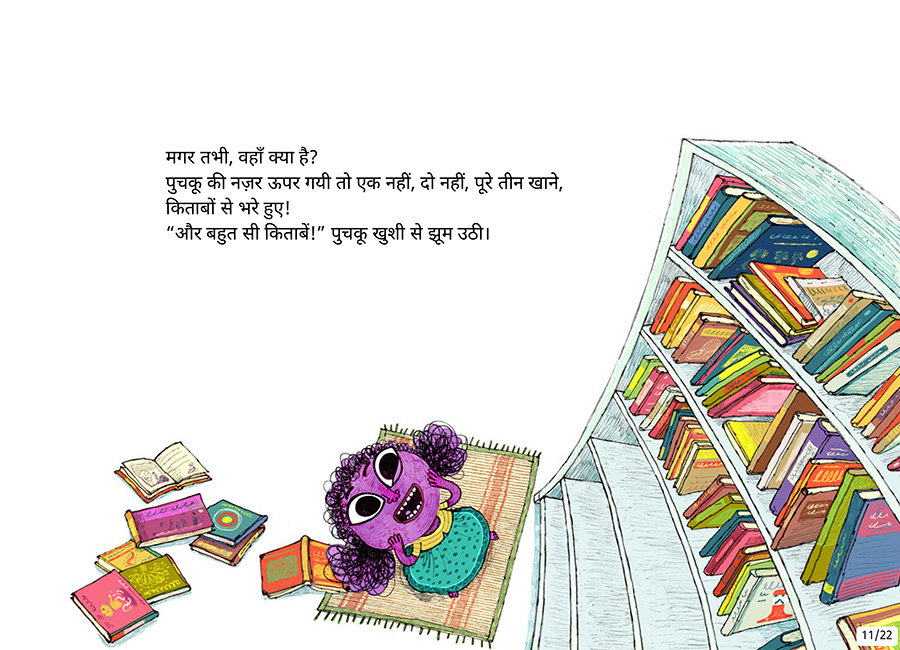 मगर तभी, वहाँ क्या है?
पुचकू की नज़र ऊपर गयी तो एक नहीं, दो नहीं, पूरे तीन खाने,
किताबों से भरे हुए!
“और बहुत सी किताबें!” पुचकू खुशी से झूम उठी।
11/22